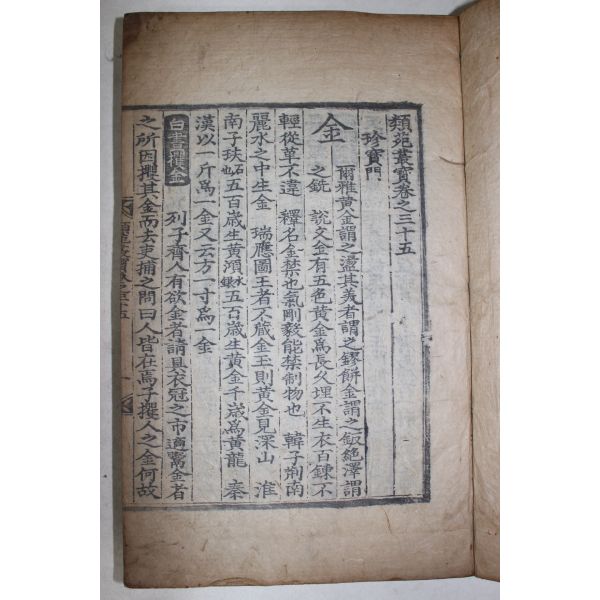 類苑叢寶卷之三十五
珍寶門
金
爾雅黃金謂之盪其美者謂之鏐餠金謂之鈑絕澤謂
之銑 說文金有五色黃金爲長久埋不生衣百鍊不
輕從革不違 釋名金禁也氣剛毅能禁制物也 韓子荊南
麗水之中生金 瑞應圖王者不藏金玉則黃金見深山 淮
南子玦石也五百歲生黃澒水銀五百歲生黃金千歲爲黃龍 秦
漢以一斤爲一金又云方一寸爲一金
白晝攫金 列子齊人有欲金者請具衣冠之市適鬻金者
之所因攫其金而去吏捕之問曰人皆在焉子攫人之金何故
類苑叢寶卷之三十五